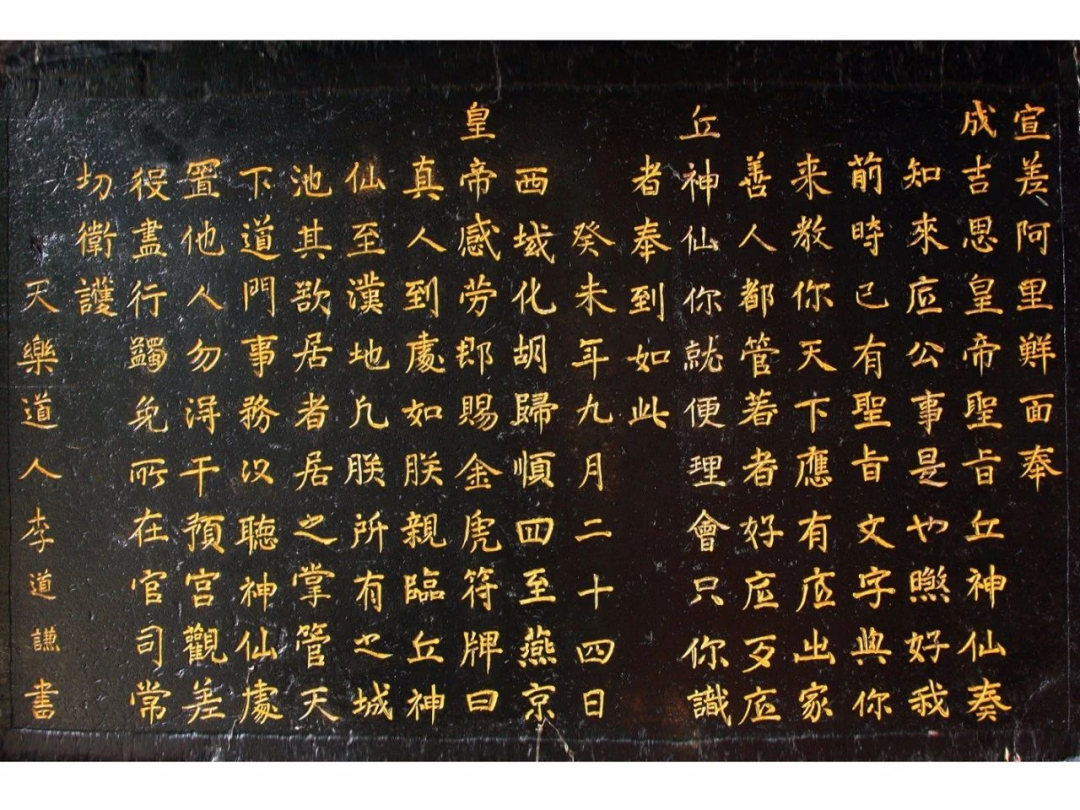 宣差阿里鮮面奉
成吉思皇帝聖旨丘神仙奏
知來底公事是也煞好我
前時已有聖旨文字與你
来教你天下應有底出家
善人都管著者好底歹底
丘神仙你就便理會只你識
者奉到如此
癸未年九月二十四日
西域化胡歸順回至燕京
皇帝感劳即賜金虎符牌曰
真人到處如朕親臨丘神
仙至漢地凡朕所有之城
池其欲居者居之掌管天
下道門事務以聽神仙處
置他人勿得干預宮觀差
役盡行蠲免所在官司常
切衛護
天樂道人李道謙書